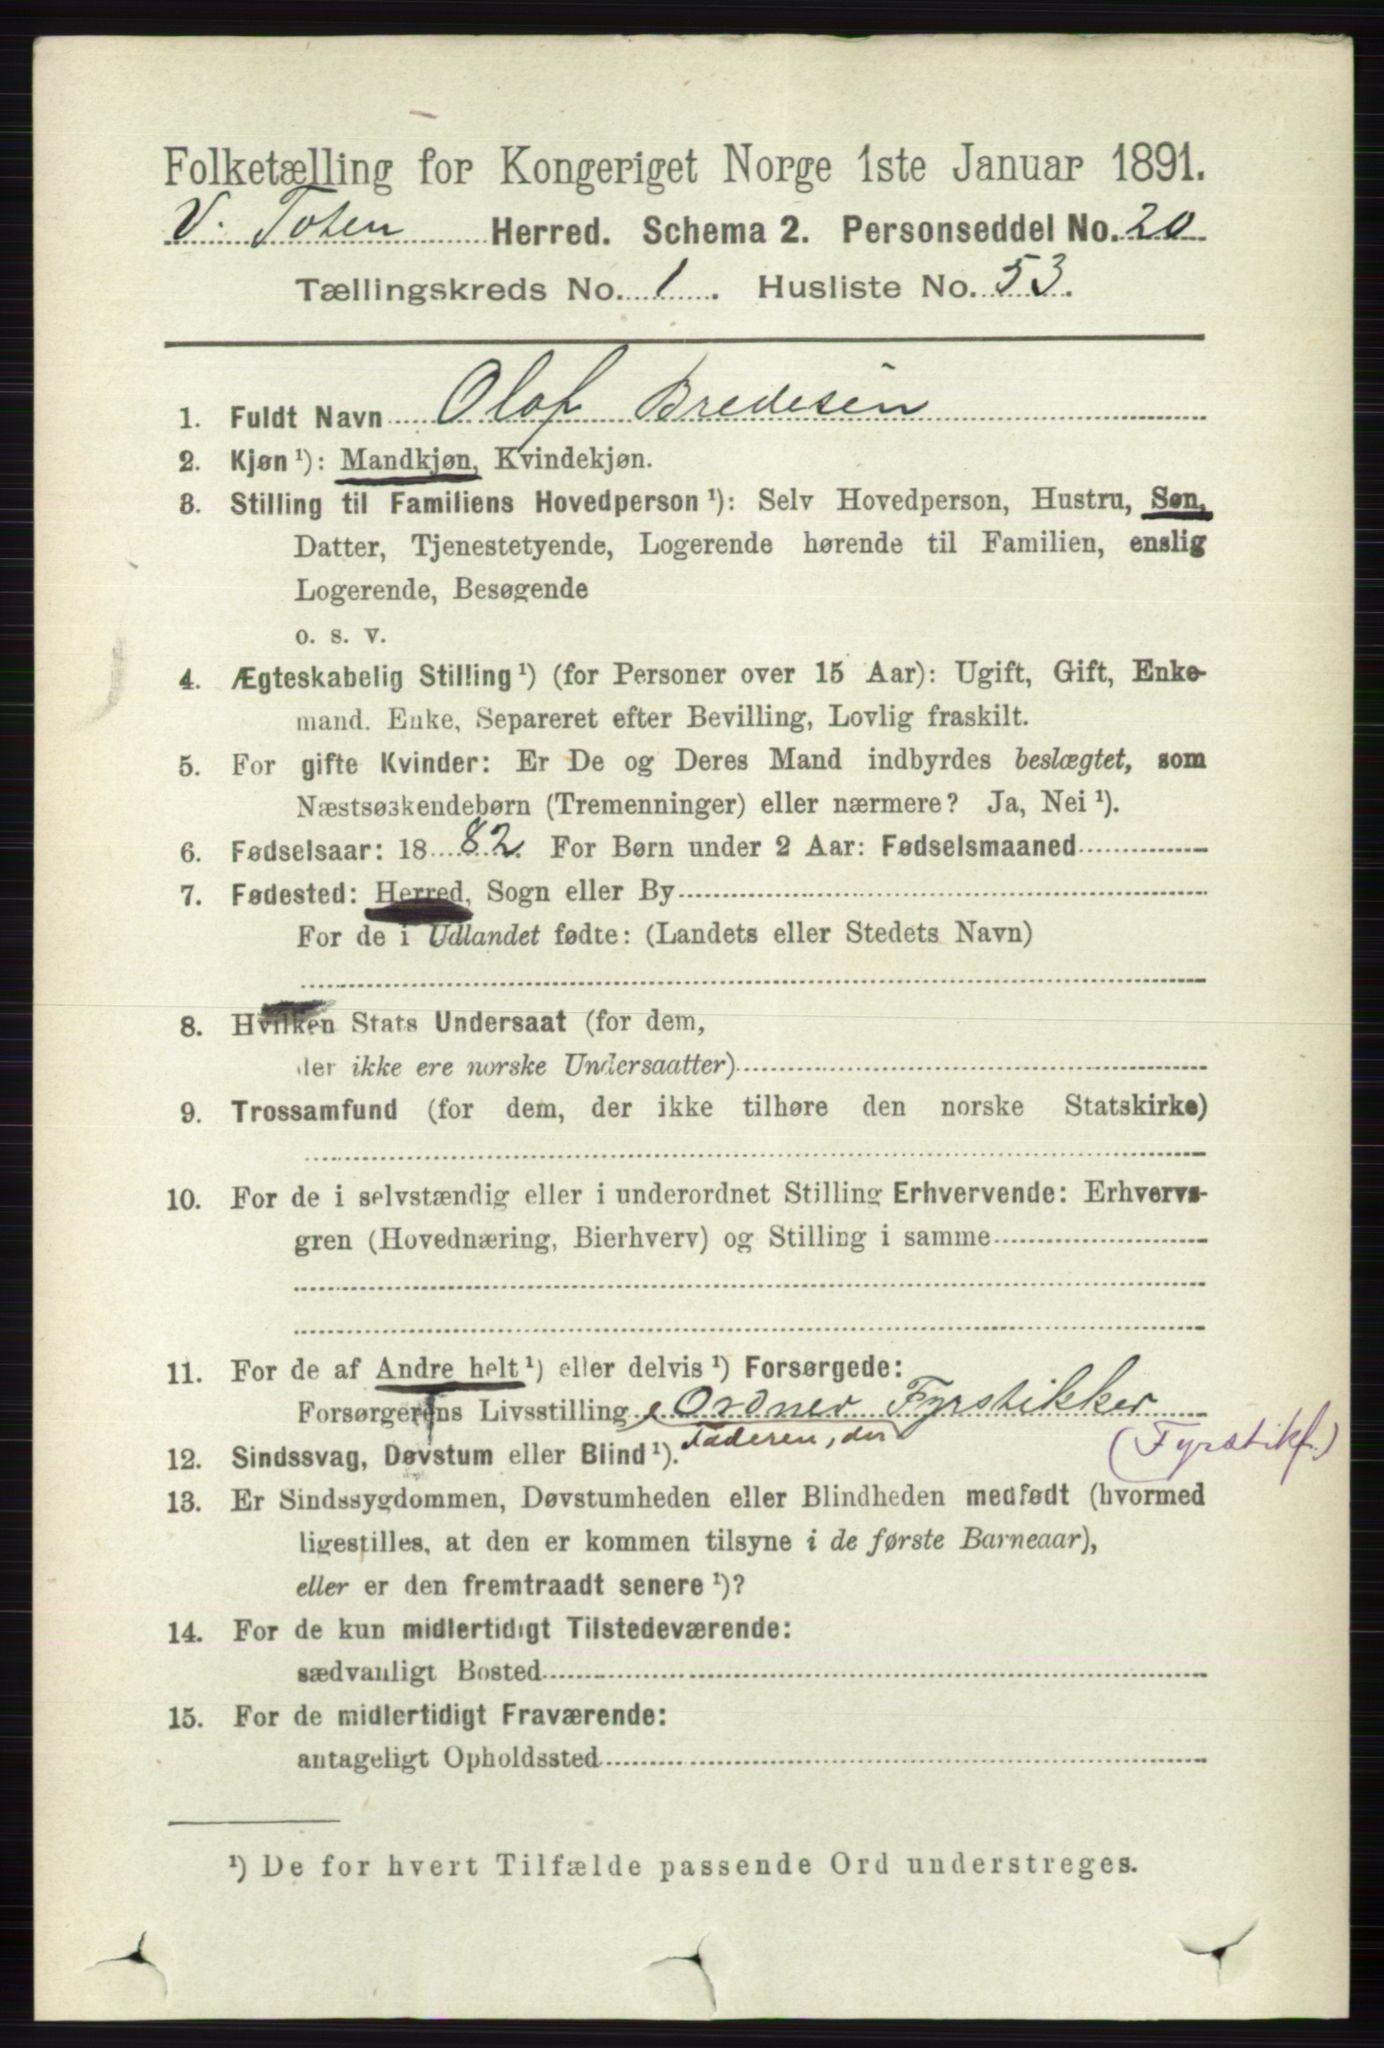 Folketælling for Kongeriget Norge 1ste Januar 1891.
V. Toten Herred. Schema 2. Personseddel No. 20
Tællingskreds No. 1. Husliste No. 53.
1. Fuldt Navn Olaf Bredesen
2. Kjøn ¹): Mandkjøn, Kvindekjøn.
3. Stilling til Familiens Hovedperson ¹): Selv Hovedperson, Hustru, Søn,
Datter, Tjenestetyende, Logerende hørende til Familien, enslig
Logerende, Besøgende
o. s. v.
4. Ægteskabelig Stilling ¹) (for Personer over 15 Aar): Ugift, Gift, Enke-
mand. Enke, Separeret efter Bevilling, Lovlig fraskilt.
5. For gifte Kvinder: Er De og Deres Mand indbyrdes beslægtet, som
Næstsøskendebørn (Tremenninger) eller nærmere? Ja, Nei ¹).
6. Fødselsaar: 1882. For Børn under 2 Aar: Fødselsmaaned
7. Fødested: Herred, Sogn eller By
For de i Udlandet fødte: (Landets eller Stedets Navn)
8. Hvilken Stats Undersaat (for dem,
der ikke ere norske Undersaatter)
9. Trossamfund (for dem, der ikke tilhøre den norske Statskirke)
10. For de i selvstændig eller i underordnet Stilling Erhvervende: Erhvervs-
gren (Hovednæring, Bierhverv) og Stilling i samme
11. For de af Andre helt ¹) eller delvis ¹) Forsørgede:
Forsørgerens Livsstilling Ordner Fyrstikker
Faderen, der
(Fyrstikf.)
12. Sindssvag, Døvstum eller Blind ¹).
13. Er Sindssygdommen, Døvstumheden eller Blindheden medfødt (hvormed
ligestilles, at den er kommen tilsyne i de første Barneaar),
eller er den fremtraadt senere ¹)?
14. For de kun midlertidigt Tilstedeværende:
sædvanligt Bosted
15. For de midlertidigt Fraværende:
antageligt Opholdssted
¹) De for hvert Tilfælde passende Ord understreges.